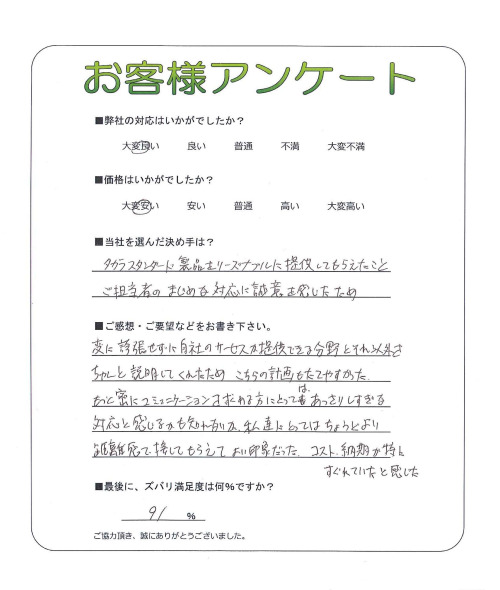 お客様アンケート
■弊社の対応はいかがでしたか?
大変良い 良い 普通 不満 大変不満
■価格はいかがでしたか?
大変安い 安い 普通 高い 大変高い
■当社を選んだ決め手は?
タカラスタンダード製品をリーズナブルに提供してもらえたこと
ご担当者のまじめな対応に誠意を感じたため
■ご感想・ご要望などをお書き下さい。
変に誇張せずに自社のサービスが提供できる分野とそれ以外を
ちゃんと説明してくれたため こちらの計画もたてやすかった。
もっと密にコミュニケーションをとられる方にとっては あっさりしすぎる
対応と感じるかも知れないが、私達にとってはちょうどよい
距離感で接してもらえて よい印象だった。コスト、納期が特に
すぐれていたと感じた
■最後に、ズバリ満足度は何%ですか?
91 %
ご協力頂き、誠にありがとうございました。